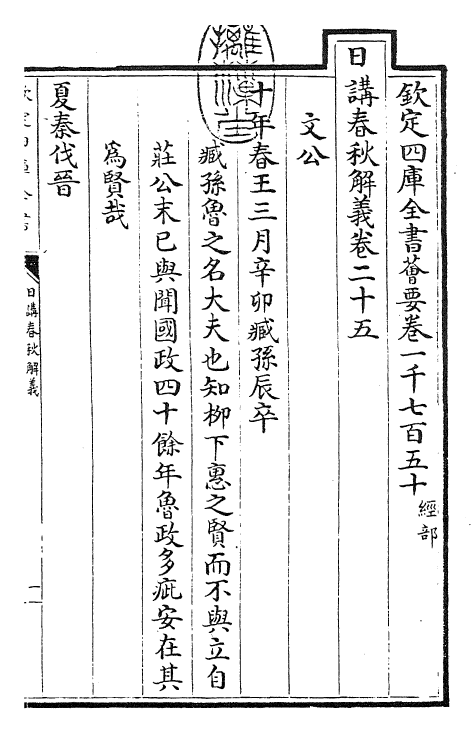 欽定四庫全書薈要卷一千七百五十
經部
日講春秋解義卷二十五
文公
十年春王三月辛卯臧孫辰卒
臧孫魯之名大夫也知柳下惠之賢而不與立自
莊公末已與聞國政四十餘年魯政多疵安在其
為賢哉
夏秦伐晉
日講春秋解義
一